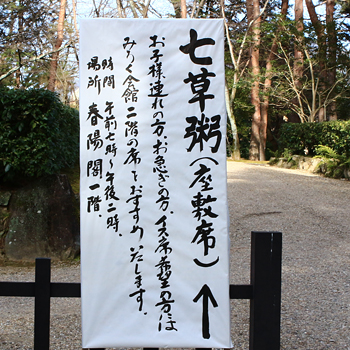 七草粥(座敷席)↑
お子様連れの方、お急ぎの方、イス席希望の方は
みゆき会館二階の席をおすすめいたします。
時間 午前七時〜午後二時.
場所 春陽閣一階.